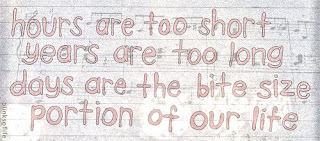 hours are too short
years are too long
days are the bite size
portion of our life